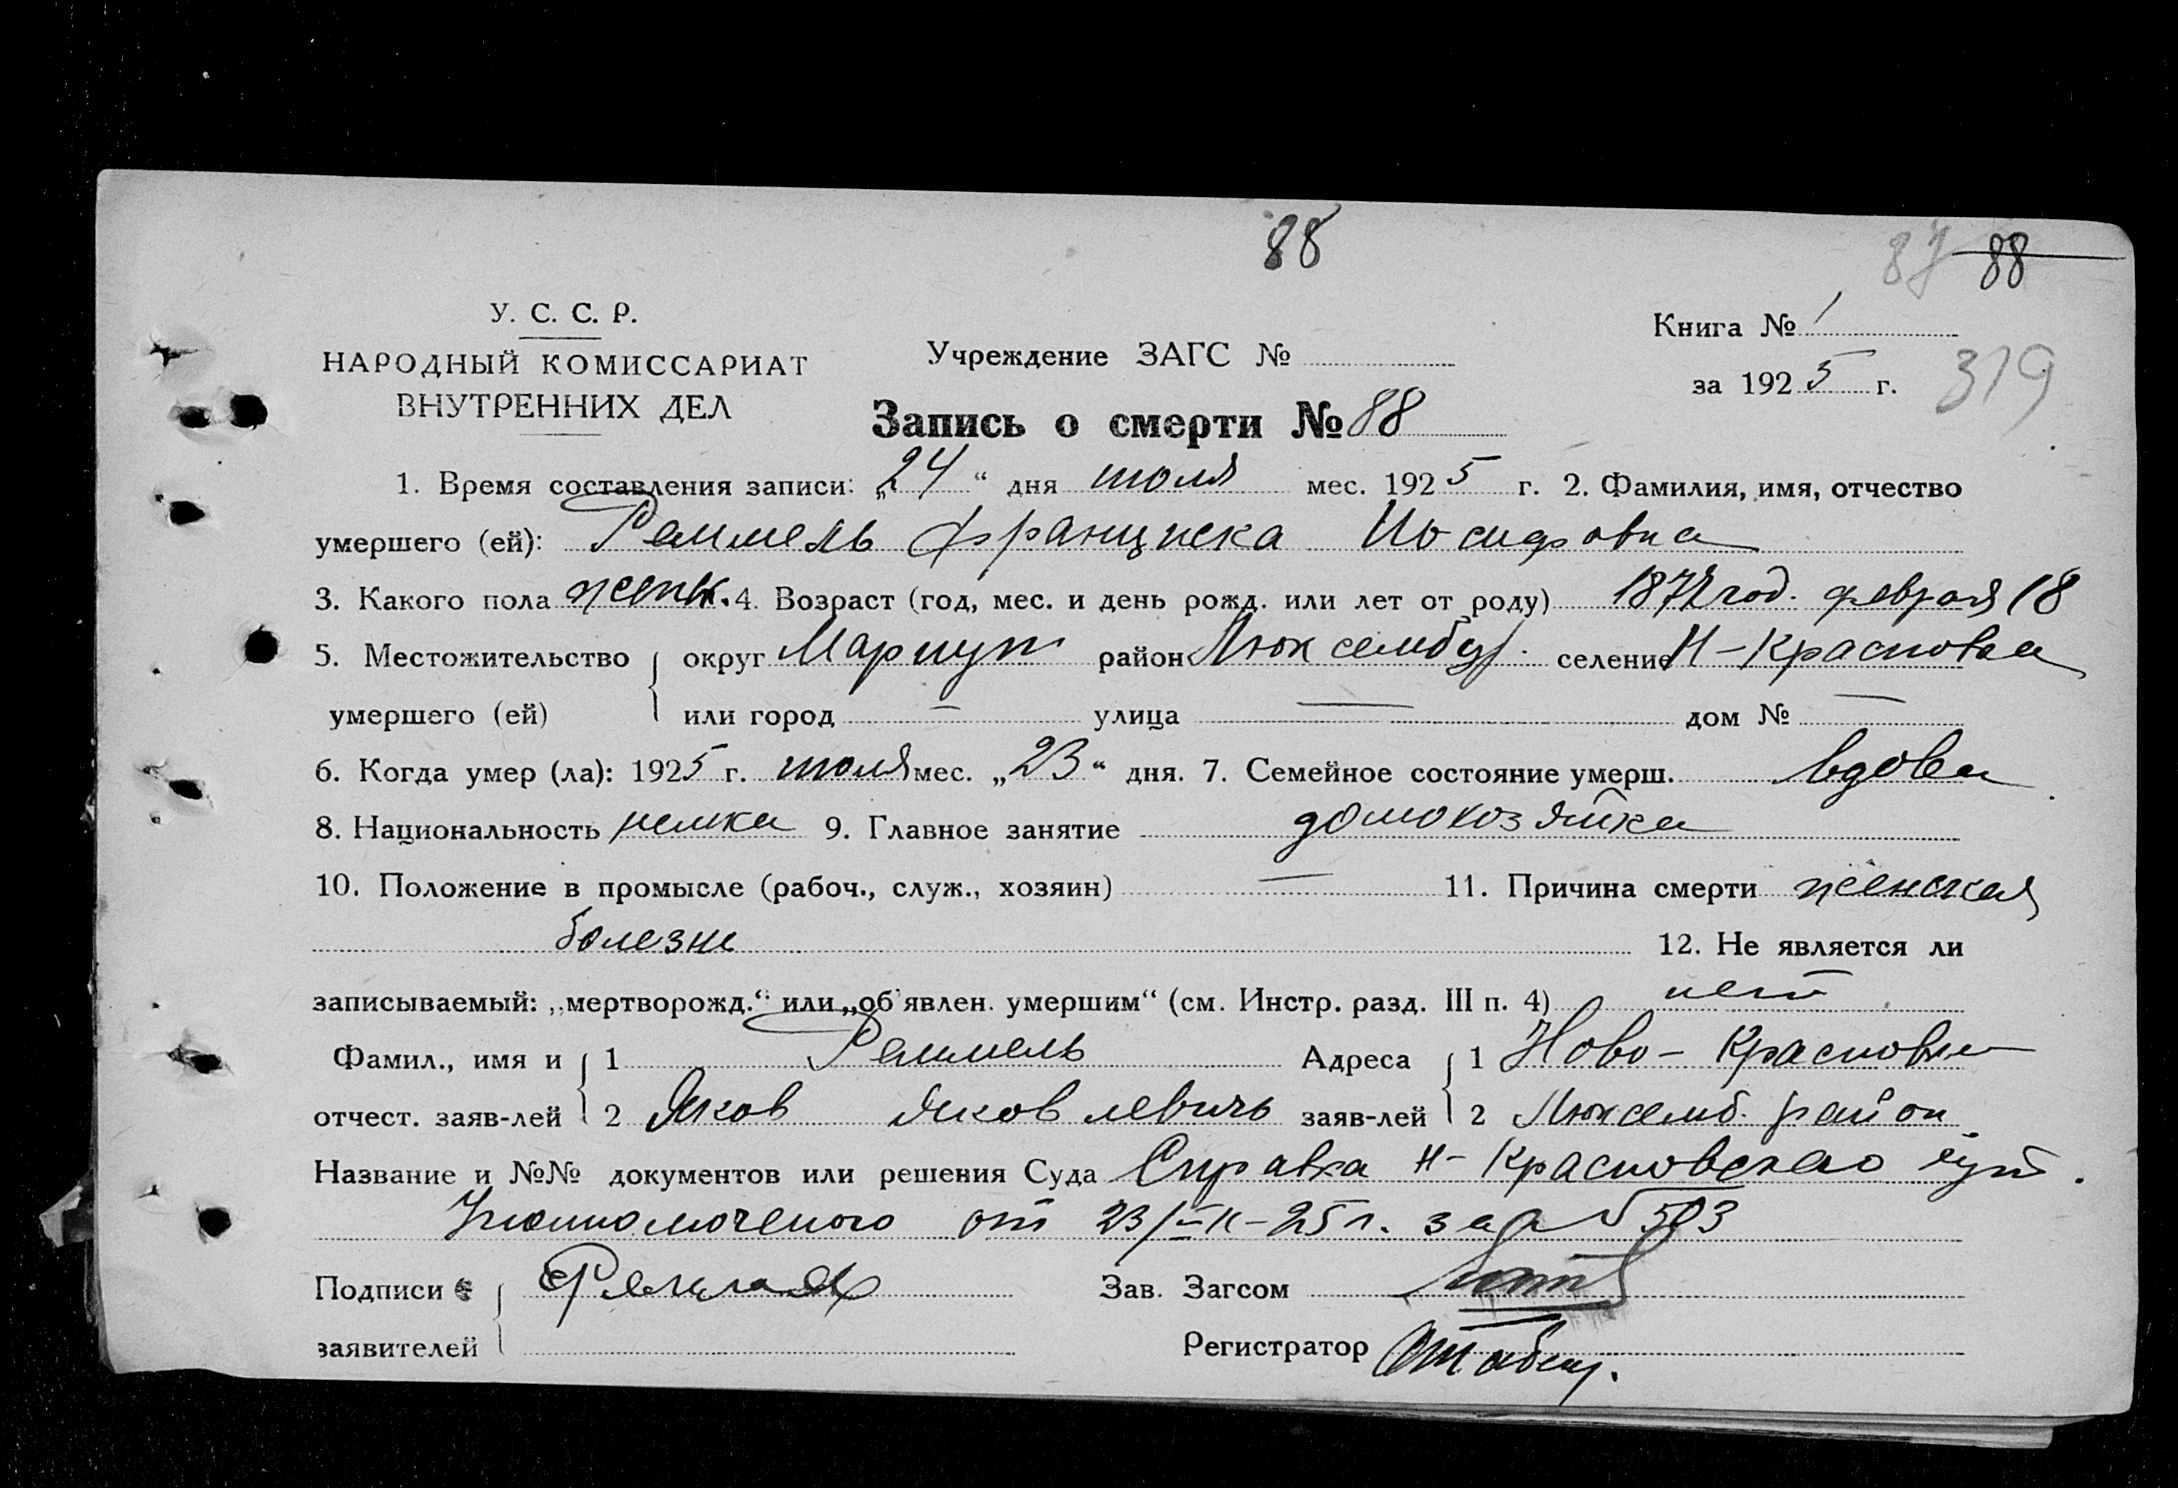 88
87 88
У. С. С. Р.
НАРОДНЫЙ КОМИССАРИАТ
ВНУТРЕННИХ ДЕЛ
Учреждение ЗАГС №
Книга № 1
за 1925 г.
319
Запись о смерти № 88
1. Время составления записи: „24“ дня июля мес. 1925 г. 2. Фамилия, имя, отчество
умершего (ей): Реммель Франциска Иосифовна
3. Какого пола женск. 4. Возраст (год, мес. и день рожд. или лет от роду) год. февраля 18
5. Местожительство округ Мариуп район Люксембур. селение Н-Красновка
умершего (ей) или город — улица — дом № —
6. Когда умер (ла): 1925 г. июля мес. „23“ дня. 7. Семейное состояние умерш. вдова
8. Национальность немка 9. Главное занятие домохозяйка
10. Положение в промысле (рабоч., служ., хозяин) — 11. Причина смерти женская
болезнь 12. Не является ли
записываемый: „мертворожд.“ или „об'явлен. умершим“ (см. Инстр. разд. III п. 4) нет
Фамил., имя и 1 Реммель Адреса 1 Ново-Красновка
отчест. заяв-лей 2 Яков Яковлевичь заяв-лей 2 Люксемб. район
Название и №№ документов или решения Суда Справка Н-Красновского
Уполномоченого от 23/ -25 г. за № 503
Подписи Реммель Зав. Загсом
заявителей Регистратор